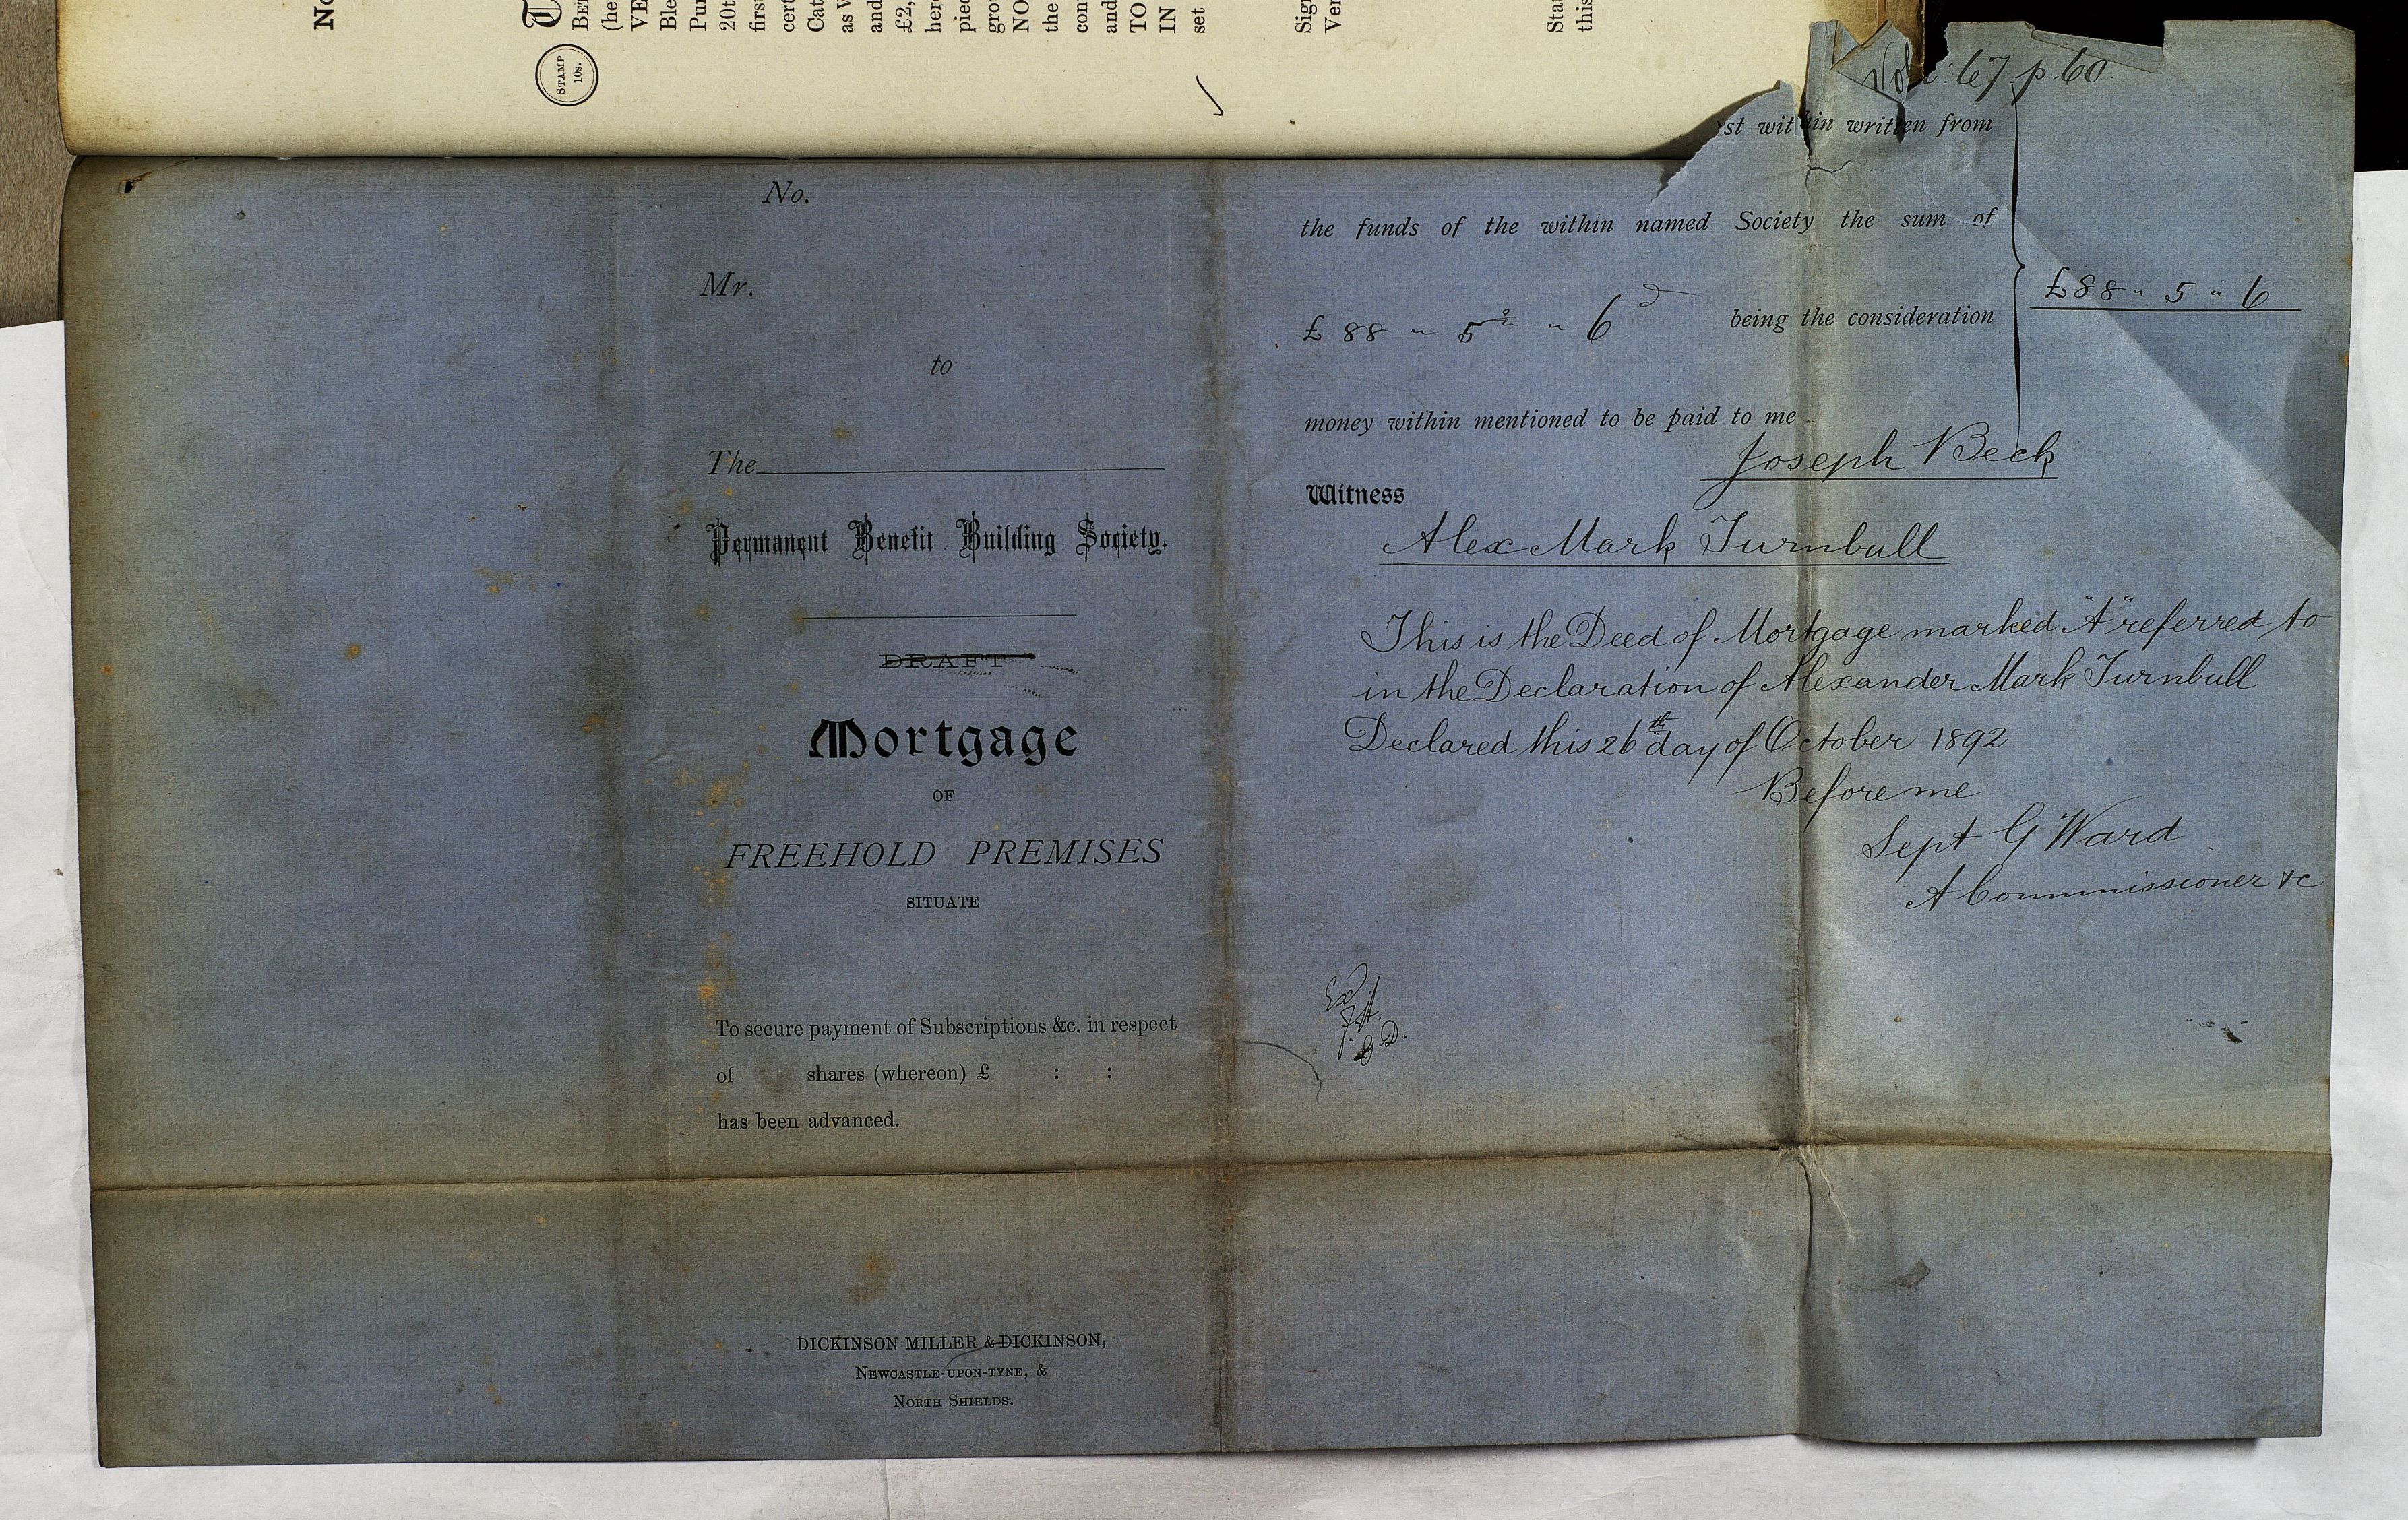 No
STAMP
10s.
Sig
Ver
Sta
this
Vol: 67 p. 60
st within written from
the funds of the within named Society the sum of
£ 88 " 5 s " 6 d being the consideration
£88 " 5 " 6
money within mentioned to be paid to me
Joseph Beck
Witness
Alex Mark Turnbull
This is the Deed of Mortgage marked "A" referred to
in the Declaration of Alexander Mark Turnbull
Declared this 26th day of October 1892
Before me
Sept G Ward
A Commissioner &c
No.
Mr.
to
The
Permanent Benefit Building Society.
DRAFT
Mortgage
OF
FREEHOLD PREMISES
SITUATE
To secure payment of Subscriptions &c. in respect
of shares (whereon) £ : :
has been advanced.
DICKINSON MILLER & DICKINSON,
NEWCASTLE-UPON-TYNE, &
NORTH SHIELDS.